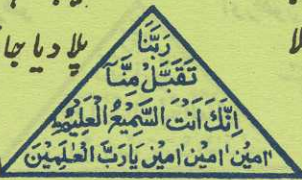 پلا دیا جا
رَبَّنَا
تَقَبَّلْ مِنَّا
اِنَّكَ اَنْتَ السَّمِيْعُ الْعَلِيْمُ
اٰمِيْن اٰمِيْن اٰمِيْن يَارَبَّ الْعٰلَمِيْنَ